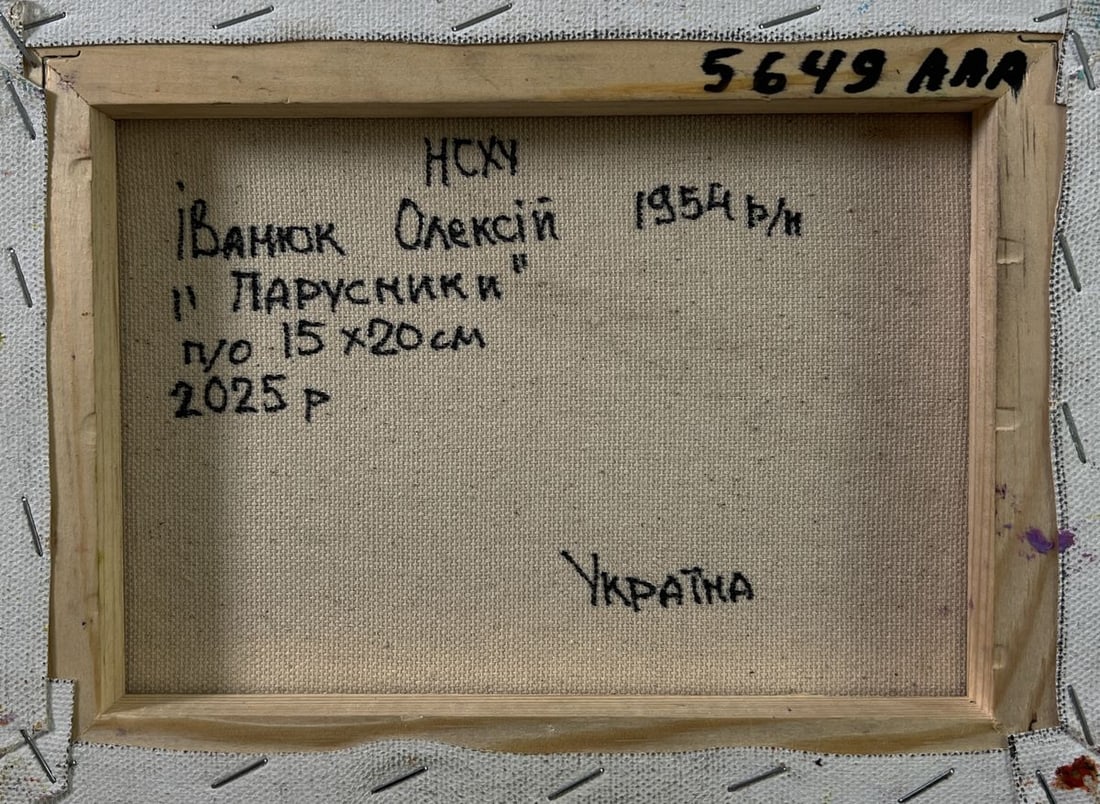 5649 AAA
НСХУ
Іванюк Олексій 1954 р/н
"Парусники"
п/о 15х20см
2025 р
Україна